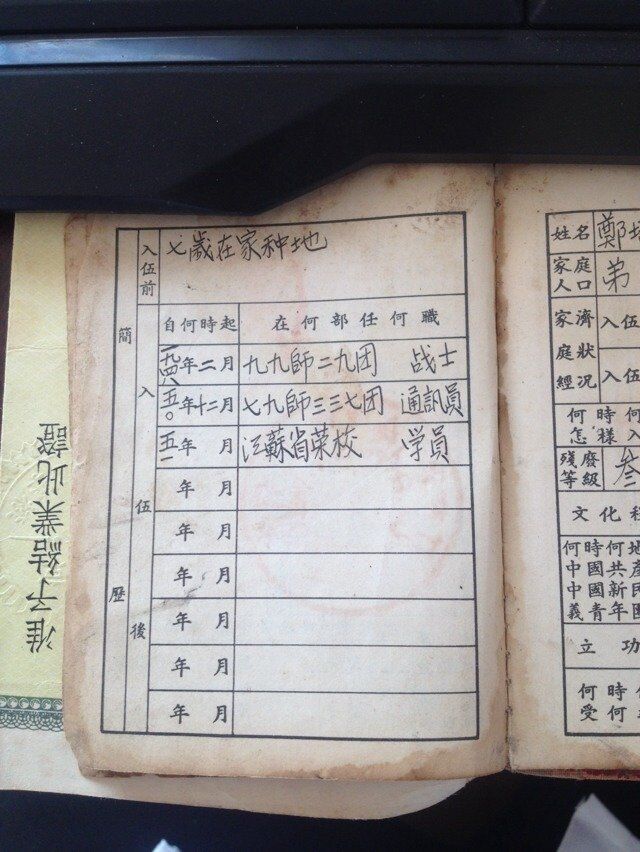 簡歷
入伍前
七歲在家种地
入伍後
自何時起 在何部任何職
一九四八年二月 九九師二九团 战士
五〇年十二月 七九師三三七团 通訊員
五一年 月 江蘇省荣校 学員
年 月
年 月
年 月
年 月
年 月
年 月
姓名 鄭
家庭人口 弟
家庭經濟狀況 入伍
入伍
何時何
怎樣入
殘廢等級 叁
文化程
何時何地
中國共產
中國新民
義青年團
立功
何時
受何
准予結業此證